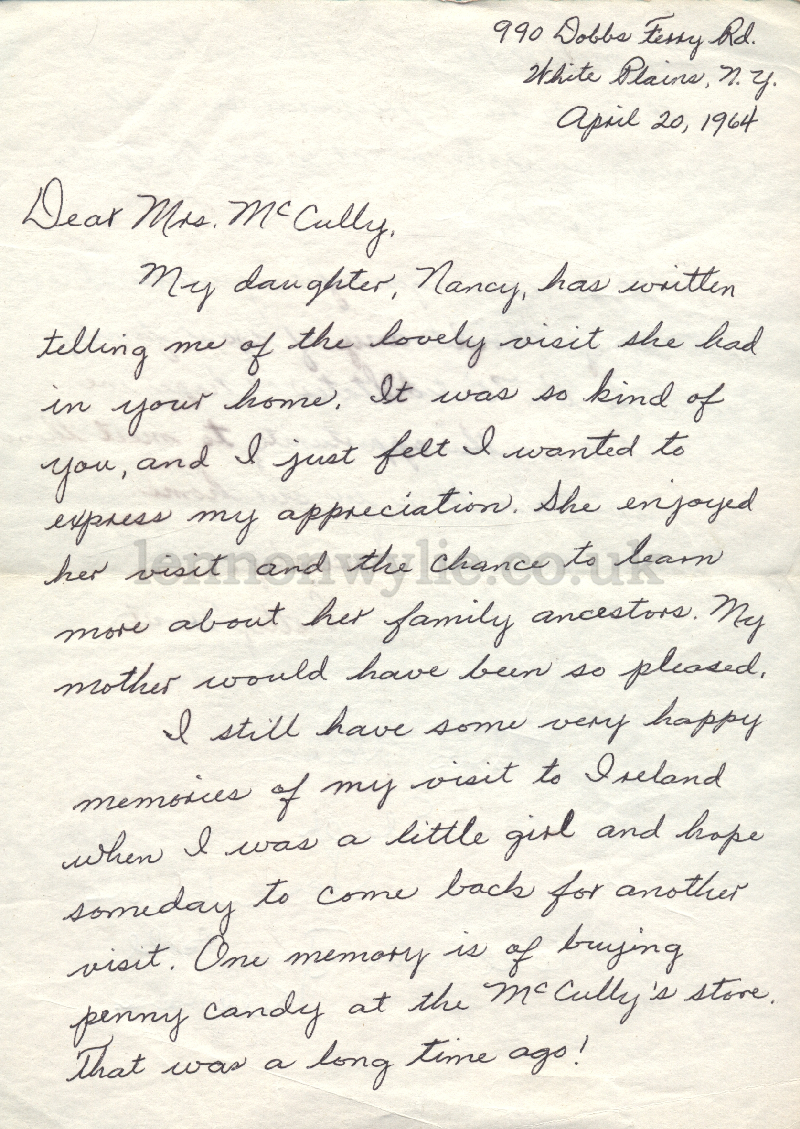 990 Dobbs Ferry Rd.
White Plains, N.Y.
April 20, 1964
Dear Mrs. McCully,
My daughter, Nancy, has written
telling me of the lovely visit she had
in your home. It was so kind of
you, and I just felt I wanted to
express my appreciation. She enjoyed
her visit and the chance to learn
lennonwylie.co.uk
more about her family ancestors. My
mother would have been so pleased.
I still have some very happy
memories of my visit to Ireland
when I was a little girl and hope
someday to come back for another
visit. One memory is of buying
penny candy at the McCully's store.
That was a long time ago!